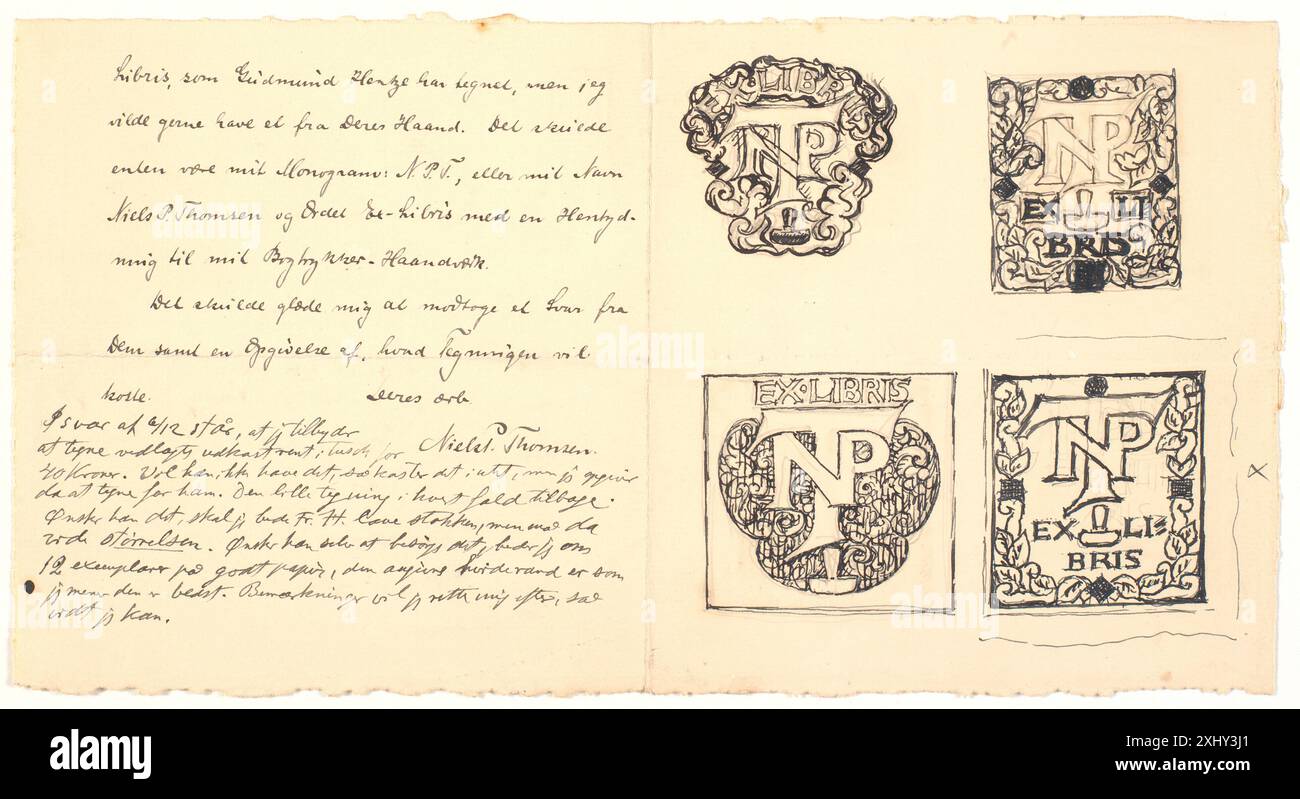 Libris, som Gudmund Hentze har tegnet, men jeg
vilde gerne have et fra Deres Haand. Det skulde
enten være mit Monogram: N.P.T., eller mit Navn
Niels P. Thomsen og Ordet Ex-Libris med en Hentyd-
ning til mit Bogtrykker-Haandværk.
Det skulde glæde mig at modtage et Svar fra
Dem samt en Opgivelse af, hvad Tegningen vil
koste.
Deres ærb.
Niels P. Thomsen.
svar af /12 står, at jeg tilbyder
at tegne vedlagte udkast rent i tusch for
40 Kroner. Vil han ikke have det, så kaster det i, men jeg opgiver
da at tegne for ham. Den lille tegning i hvert fald tilbage.
Ønsker han det, skal jeg bede Fr. H. lave stokken, men må da
vide størrelsen. Ønsker han selv at besørge det, beder jeg om
12 exemplarer på godt papir, den hvide rand er som
jeg mener den er bedst. Bemærkninger vil jeg rette mig efter, så
vidt jeg kan.
EX LIBRIS
NPT
NPT
EX LI
BRIS
EX·LIBRIS
NPT
NPT
EX LI-
BRIS
x
alamy
Image ID: 2XHY3J1
www.alamy.com